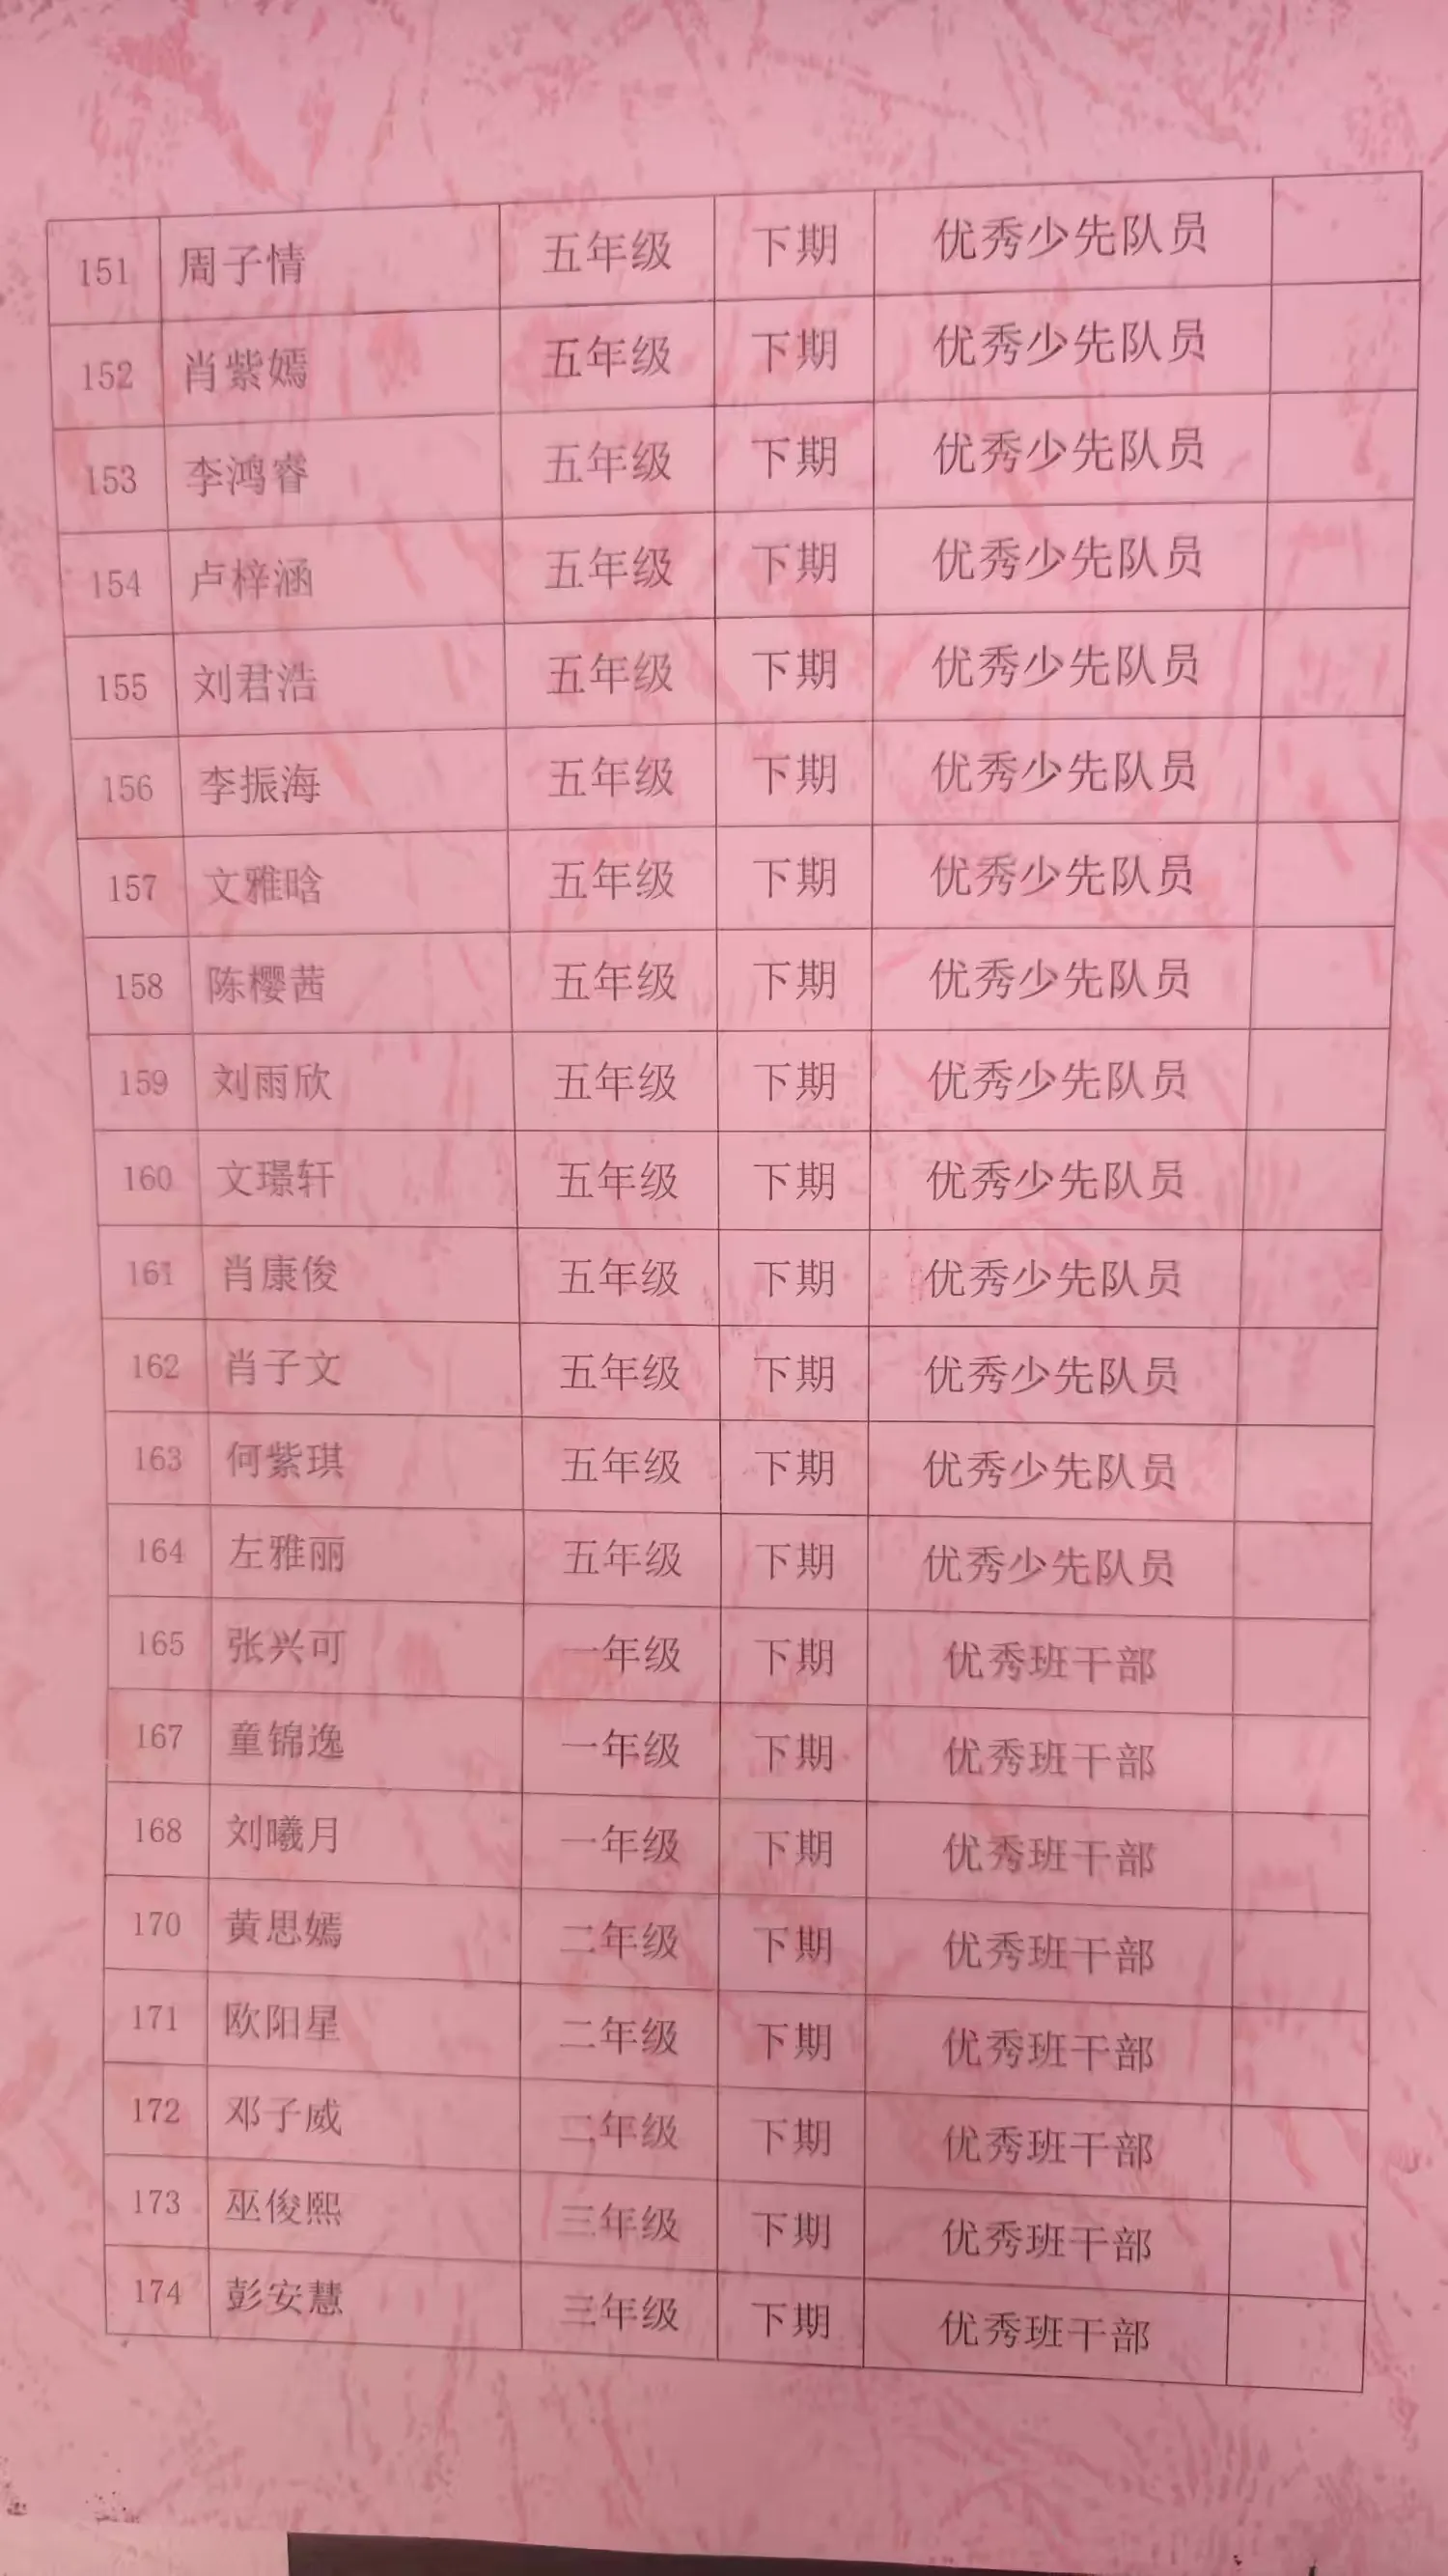 151 周子情 五年级 下期 优秀少先队员
152 肖紫嫣 五年级 下期 优秀少先队员
153 李鸿睿 五年级 下期 优秀少先队员
154 卢梓涵 五年级 下期 优秀少先队员
155 刘君浩 五年级 下期 优秀少先队员
156 李振海 五年级 下期 优秀少先队员
157 文雅晗 五年级 下期 优秀少先队员
158 陈樱茜 五年级 下期 优秀少先队员
159 刘雨欣 五年级 下期 优秀少先队员
160 文璟轩 五年级 下期 优秀少先队员
161 肖康俊 五年级 下期 优秀少先队员
162 肖子文 五年级 下期 优秀少先队员
163 何紫琪 五年级 下期 优秀少先队员
164 左雅丽 五年级 下期 优秀少先队员
165 张兴可 一年级 下期 优秀班干部
167 童锦逸 一年级 下期 优秀班干部
168 刘曦月 一年级 下期 优秀班干部
170 黄思嫣 二年级 下期 优秀班干部
171 欧阳星 二年级 下期 优秀班干部
172 邓子威 二年级 下期 优秀班干部
173 巫俊熙 三年级 下期 优秀班干部
174 彭安慧 三年级 下期 优秀班干部